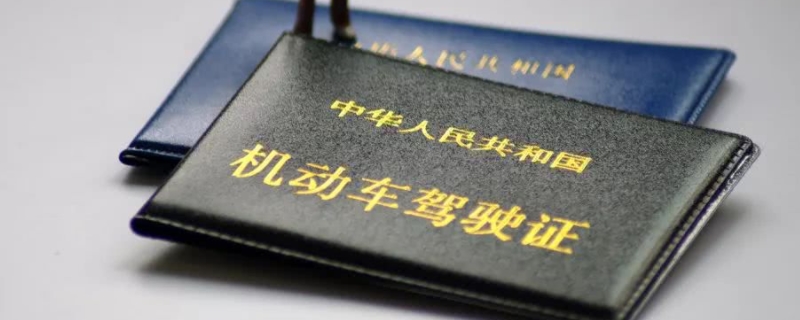 华人民共和国
中华人民共和国
机动车驾驶证